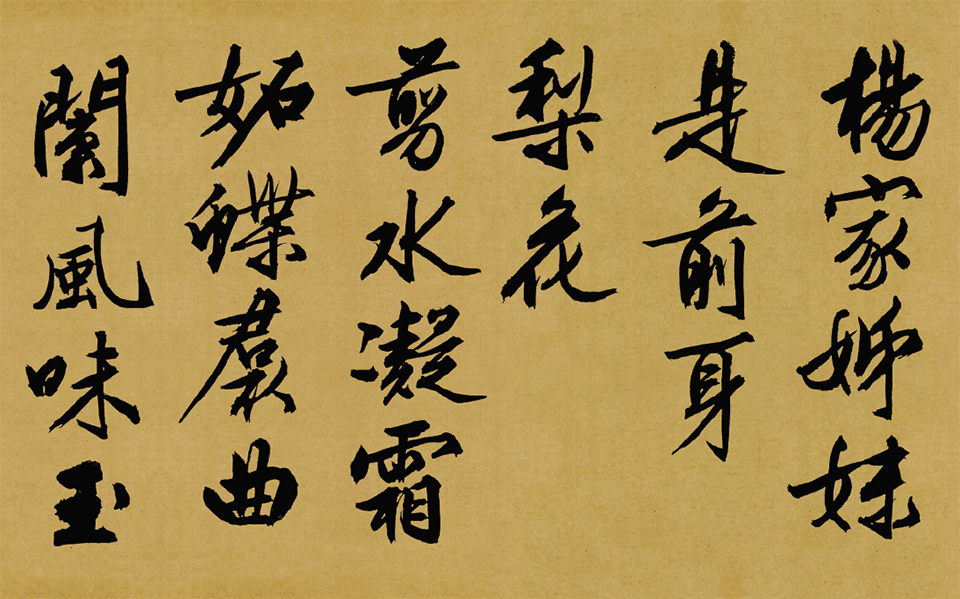 楊家姊妹
是前身
梨花
剪水凝霜
妬蝶裠曲
闌風味玉